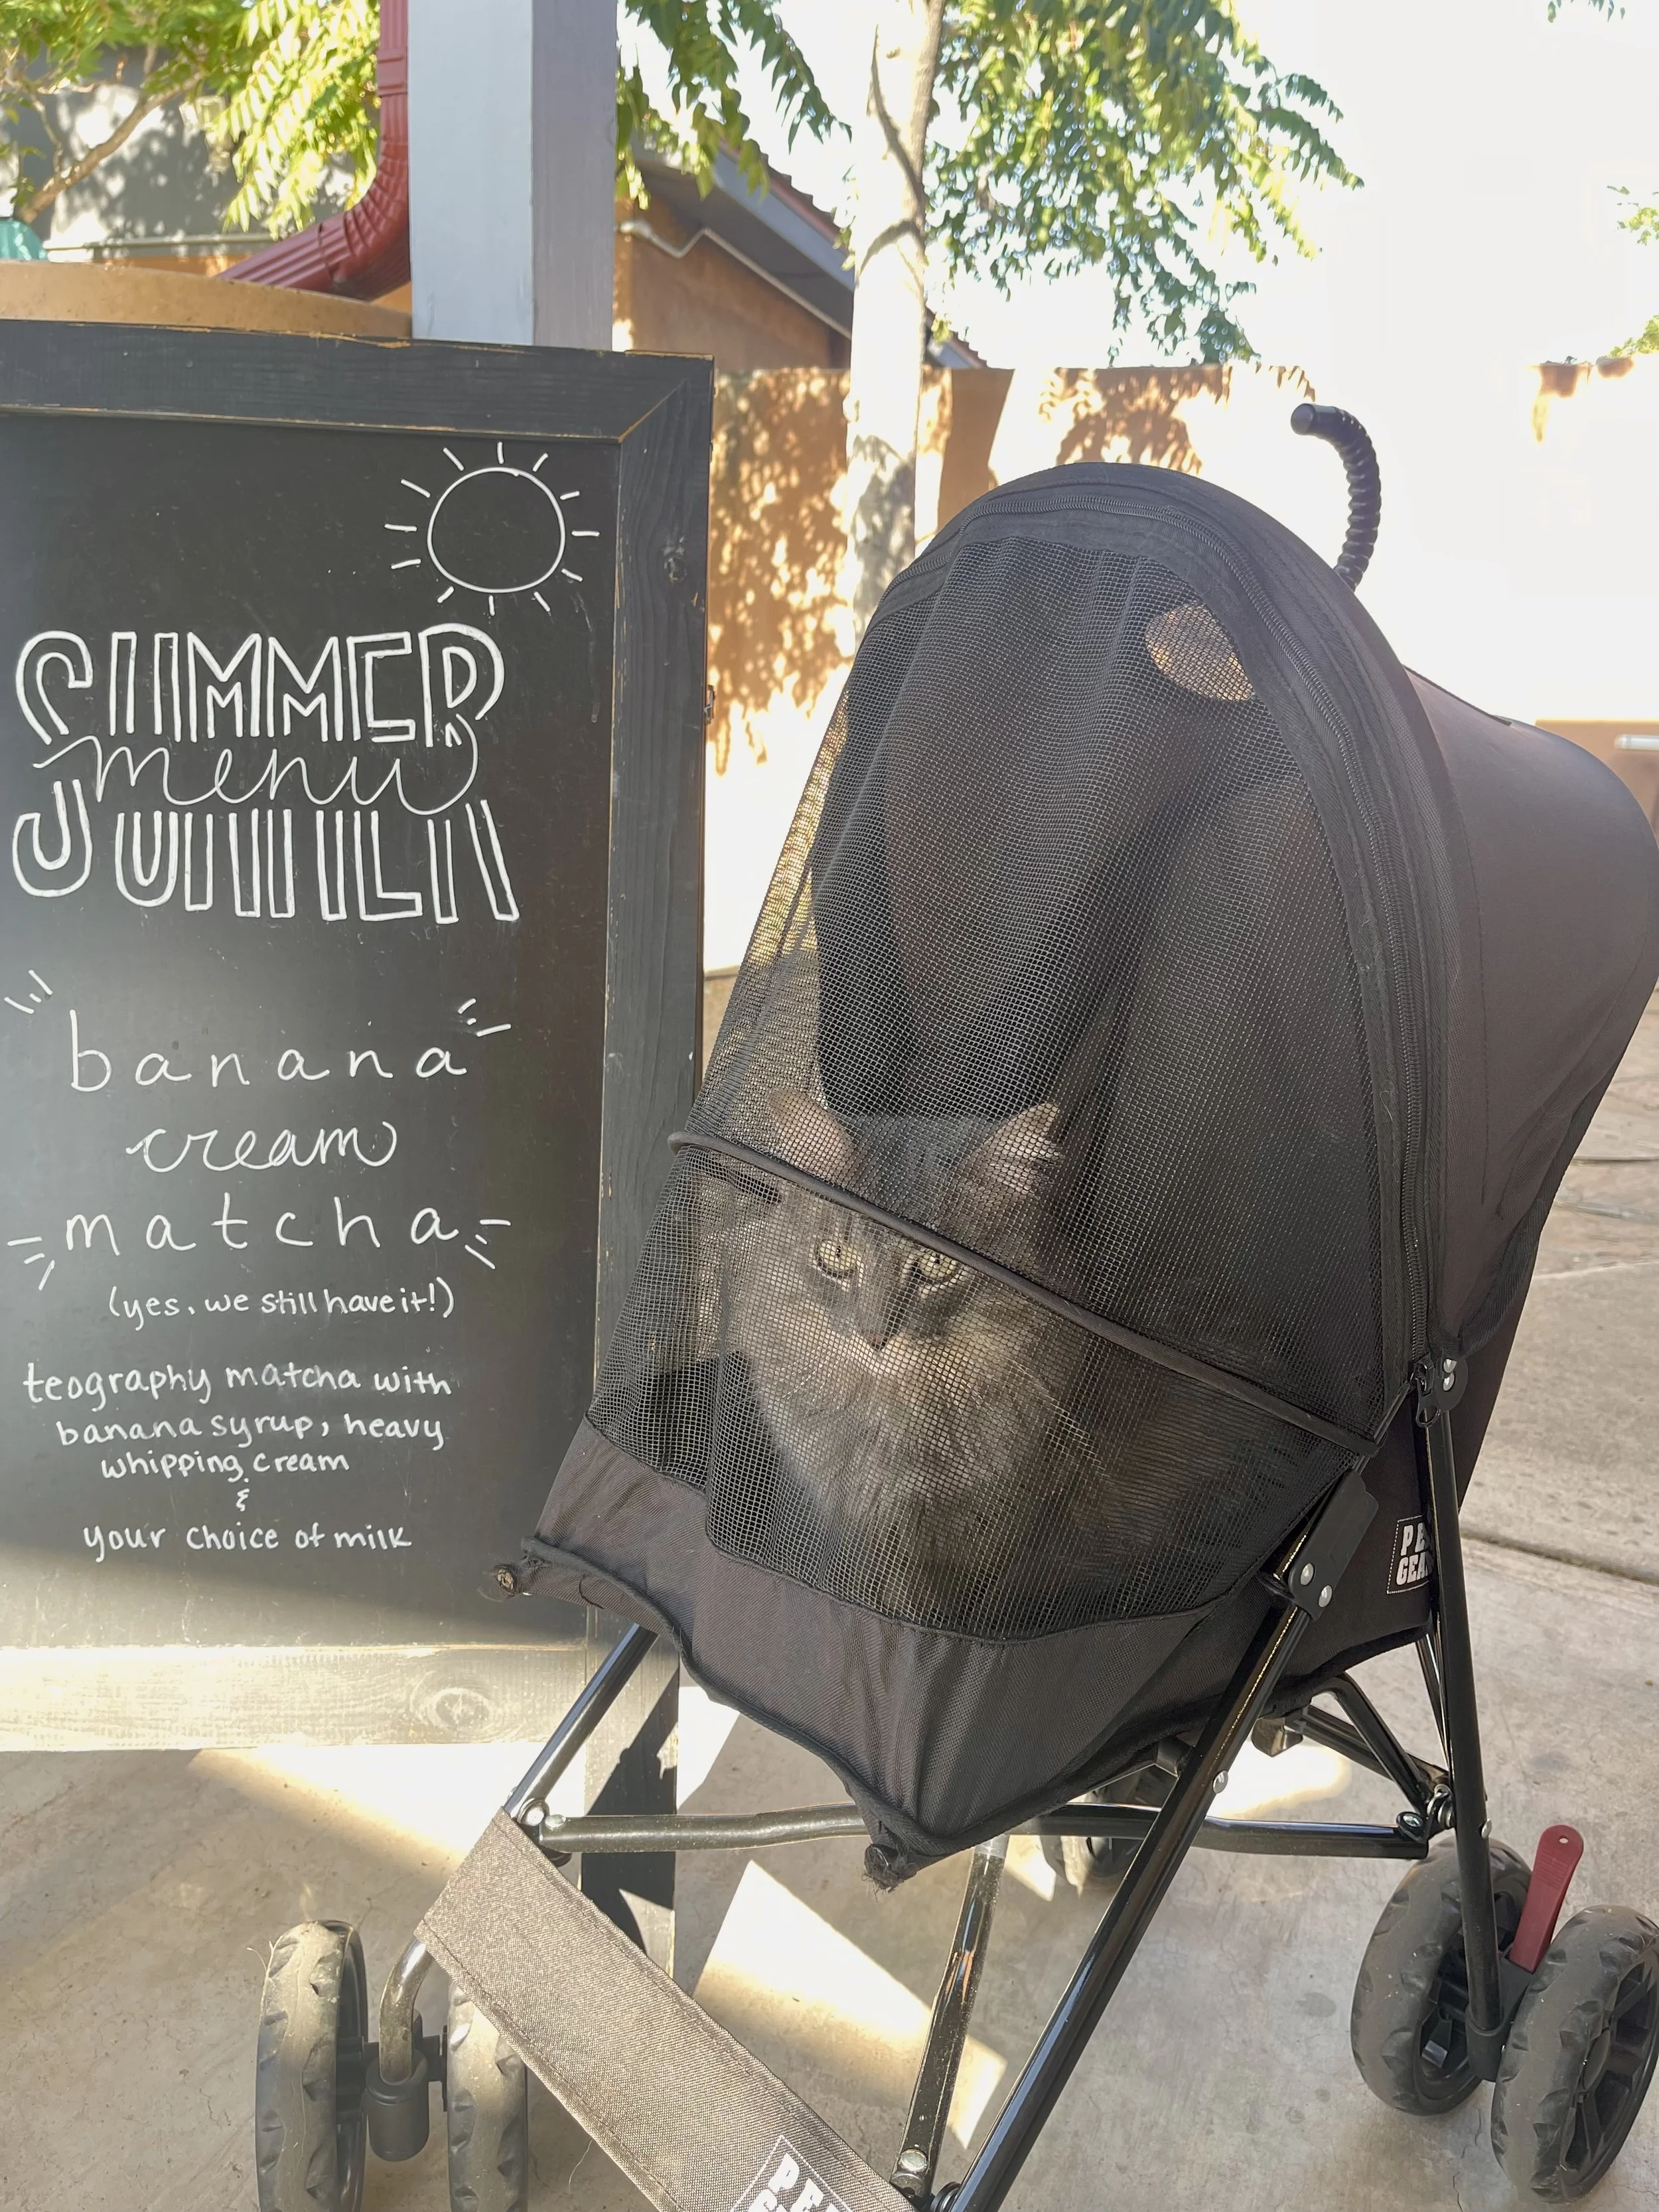 SUMMER
menu
SUMMER
banana
cream
matcha
(yes, we still have it!)
teography matcha with
banana syrup, heavy
whipping cream
&
your choice of milk
PET
GEAR